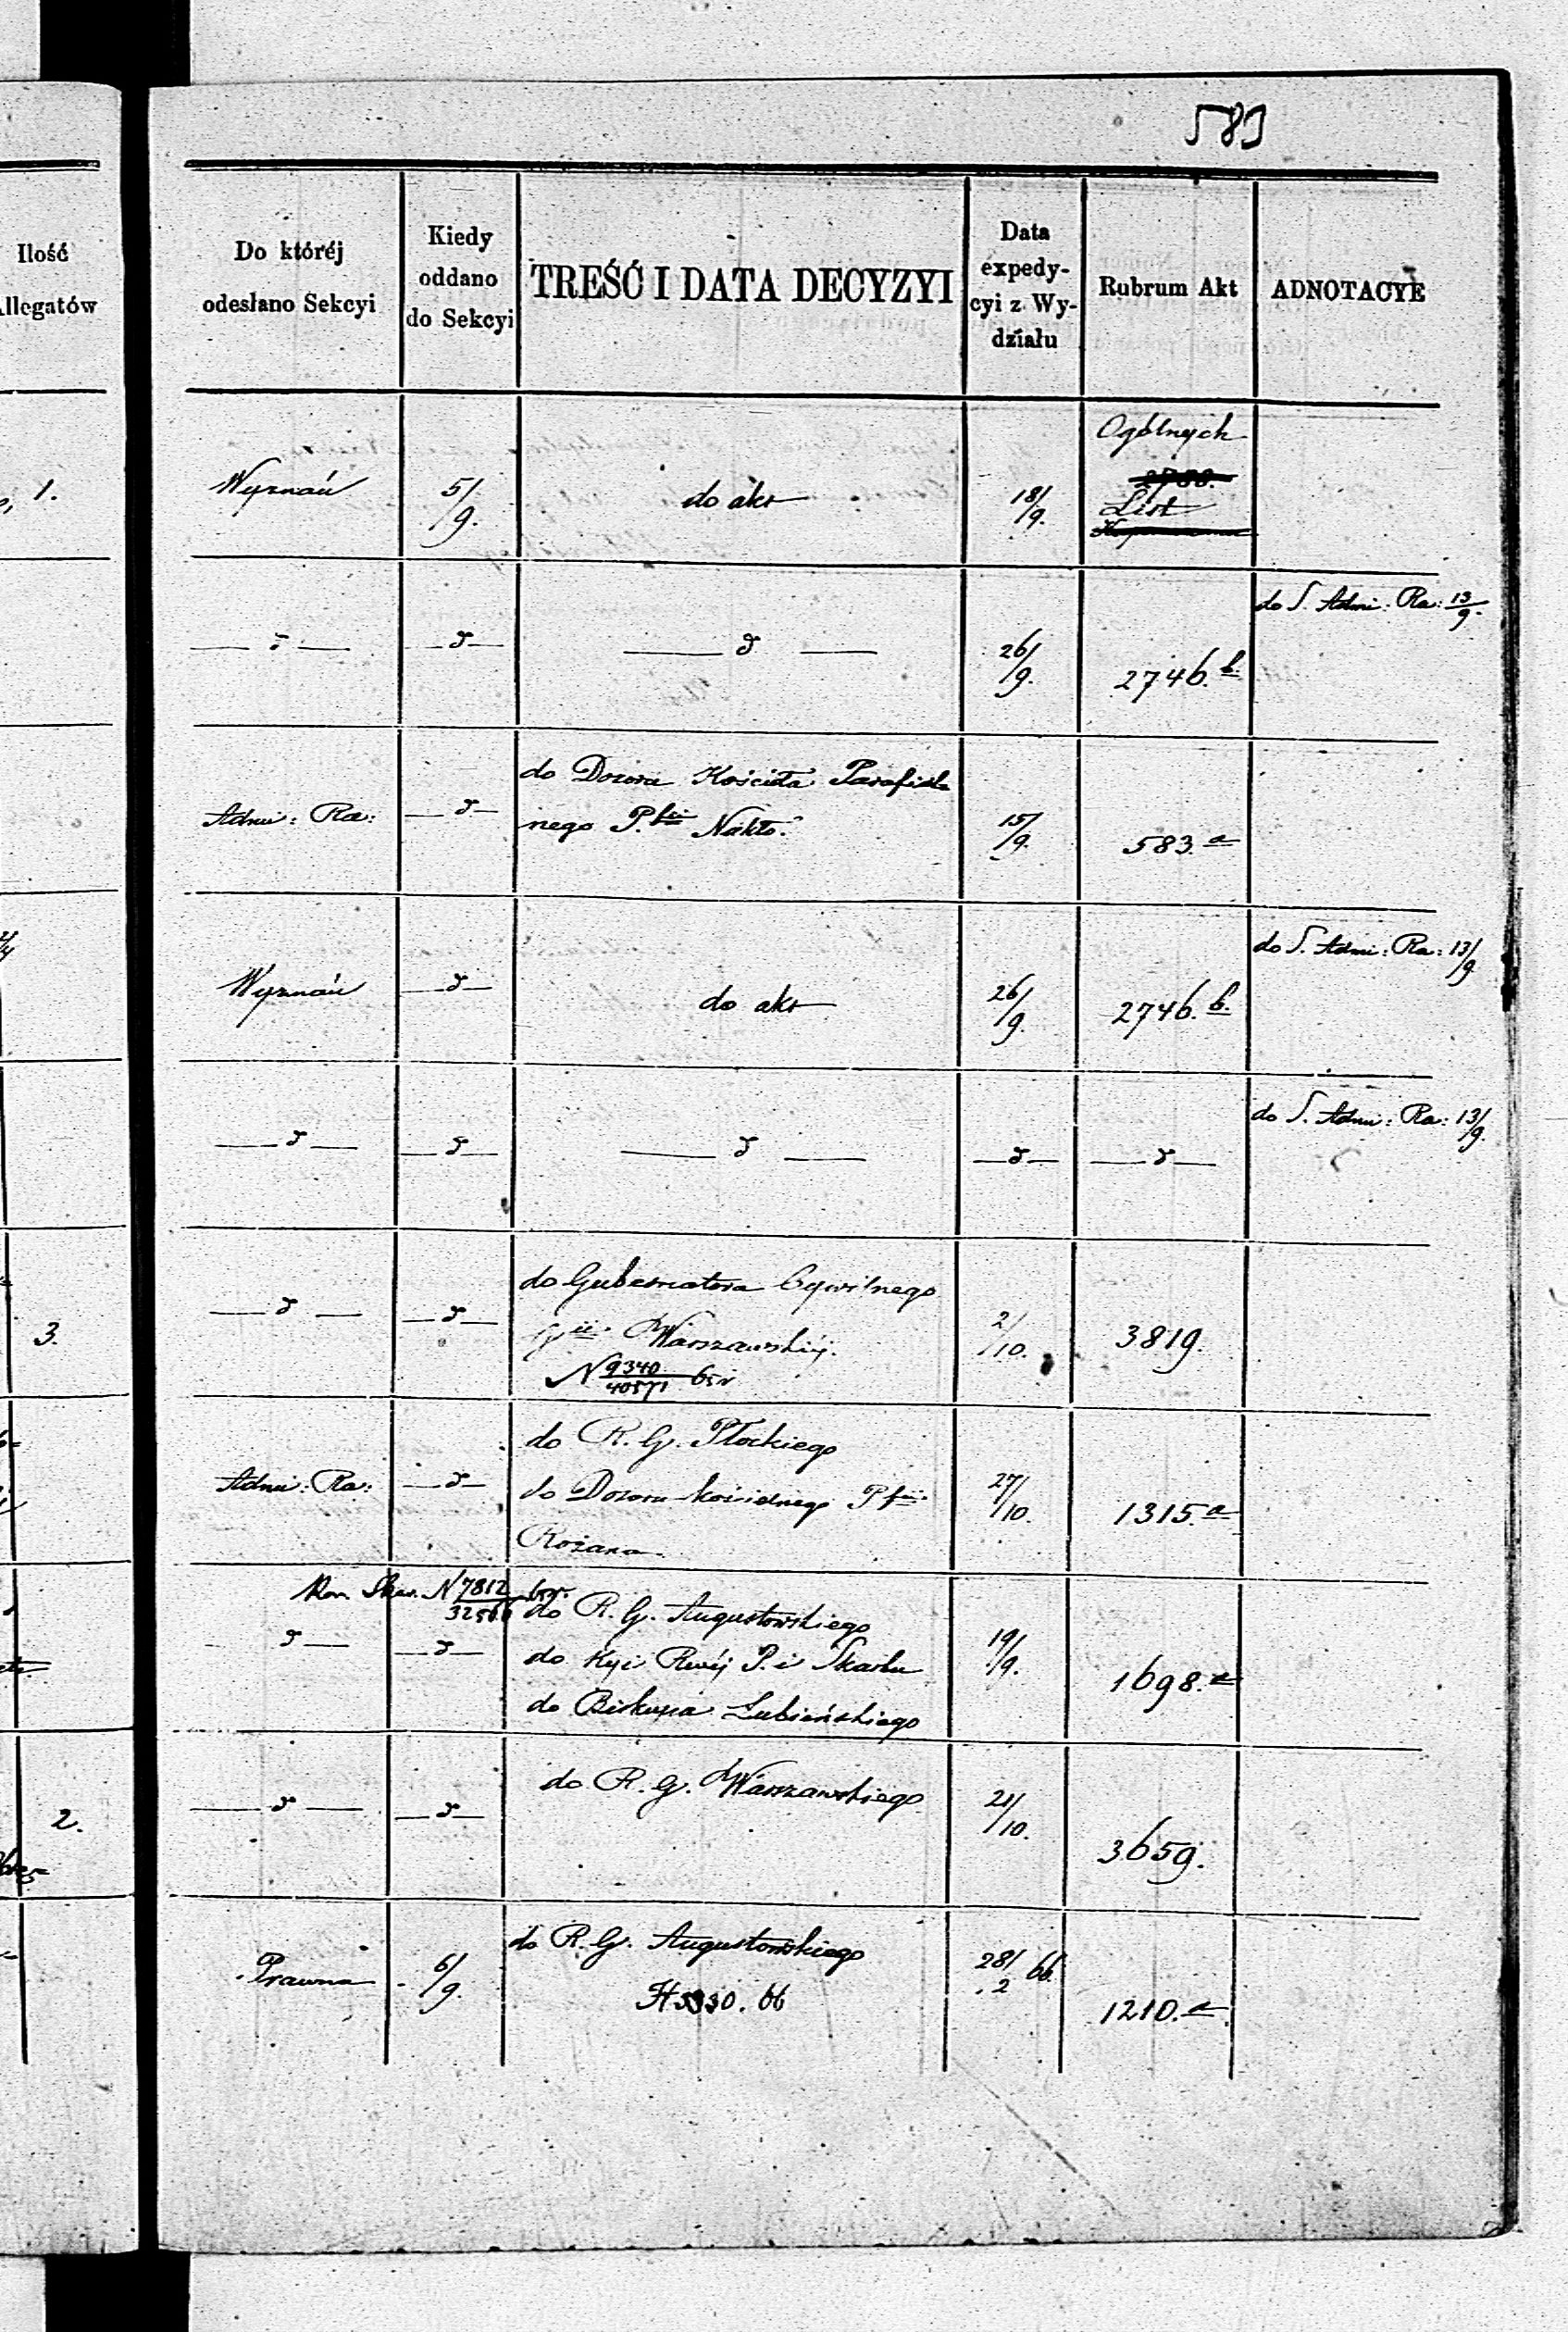 583
Ilość
Allegatów
Do któréj
odesłano Sekcyi
Kiedy
oddano
do Sekcyi
TREŚĆ I DATA DECYZYI
Data
expedy-
cyi z Wy-
działu
Rubrum Akt
ADNOTACYE
1.
Wyznań
5/9.
do akt
18/9.
Ogólnych
List
— d —
— d —
— d —
26/9.
2746. b.
do S. Adm: Ra: 13/9.
Adm: Ra:
— d —
do Dozoru Kościoła Parafial-
nego P.fii Nakło.
15/9.
583. a
Wyznań
— d —
do akt
26/9.
2746. b.
do S. Adm: Ra: 13/9.
— d —
— d —
— d —
— d —
— d —
do S. Adm: Ra: 13/9.
3.
— d —
— d —
do Gubernatora Cywilnego
G.ii Warszawskiéj.
N 9340/40571 65r
2/10.
3819.
Adm: Ra:
— d —
do R. G. Płockiego
do Dozoru kościelnego P.fii
Rożana
27/10.
1315. a
Kom. Skar. N 7812/32566 65r.
d —
— d —
do R. G. Augustowskiego
do Kyi Rwéj P. i Skarbu
do Biskupa Łubieńskiego
19/9.
1698. a
2.
— d —
— d —
do R. G. Warszawskiego
21/10.
3659.
Prawna
6/9.
do R. G. Augustowskiego
66
28/2 66.
1210. a